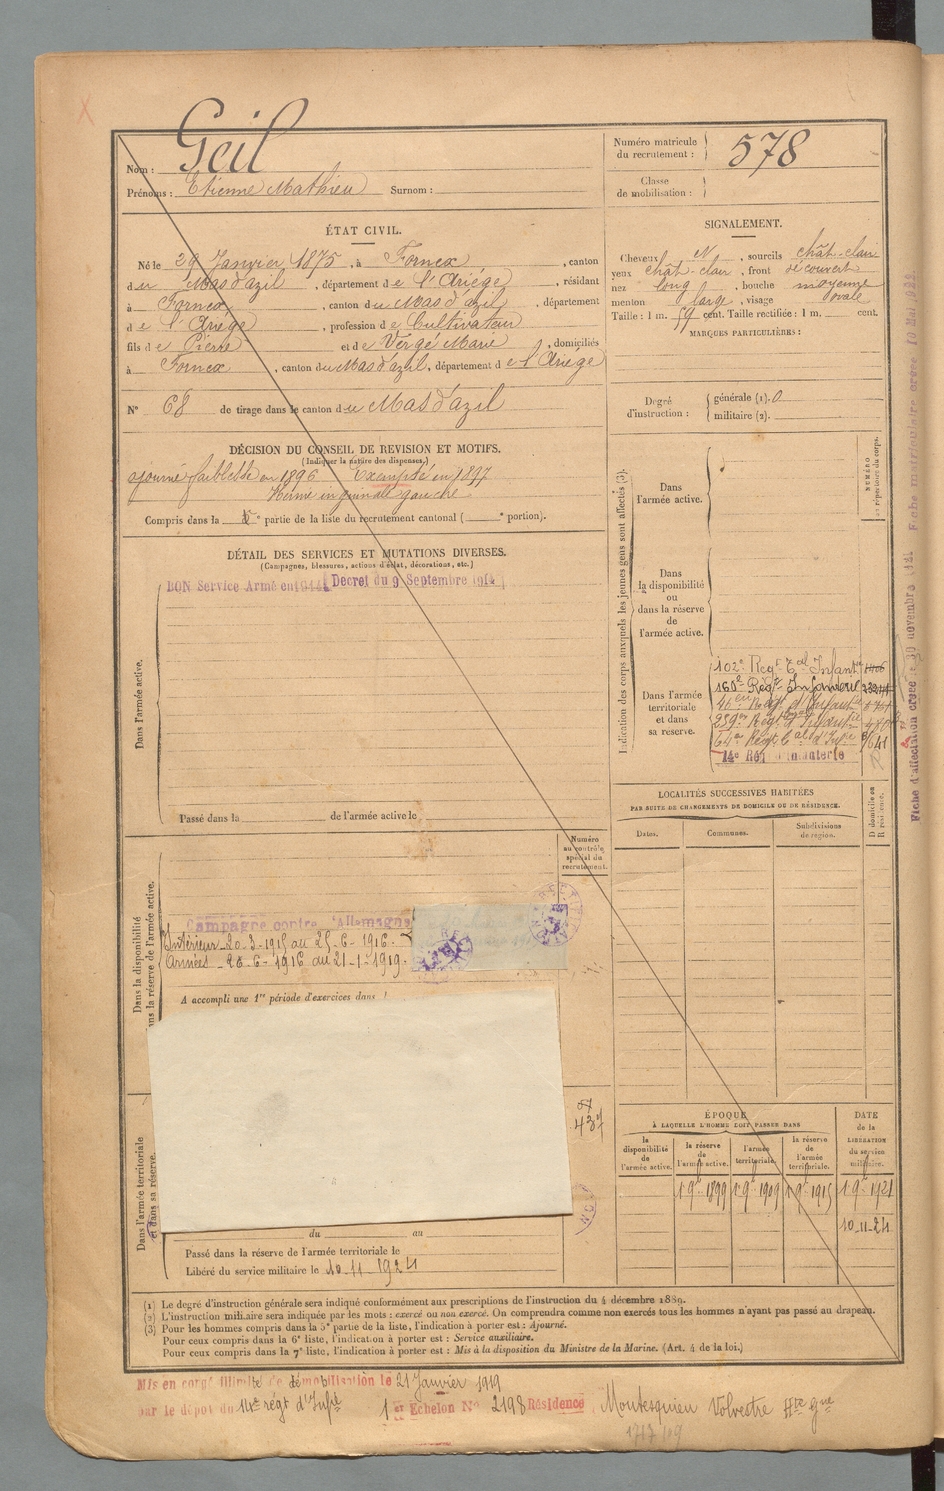 Geil
Nom :
Prénoms : Etienne Mathieu Surnom :
Numéro matricule du recrutement : 578
Classe de mobilisation :
ÉTAT CIVIL.
Né le 29 Janvier 1875, à Fornex, canton
du Mas d'azil, département de l'Ariège, résidant
à Fornex, canton du Mas d'azil, département
de l'Ariège, profession de Cultivateur
fils de Pierre et de Vergé Marie, domiciliés
à Fornex, canton du Mas d'azil, département de l'Ariège
N° 68 de tirage dans le canton du Mas d'azil
SIGNALEMENT.
Cheveux N, sourcils chât-clair
yeux chât-clair, front découvert
nez long, bouche moyenne
menton large, visage ovale
Taille : 1 m. 59 cent. Taille rectifiée : 1 m. cent.
MARQUES PARTICULIÈRES :
Degré d'instruction : générale (1). 0
militaire (2).
DÉCISION DU CONSEIL DE REVISION ET MOTIFS.
(Indiquer la nature des dispenses.)
ajourné faiblesse en 1896 Exempté en 1897
Hernie inguinale gauche
Compris dans la e partie de la liste du recrutement cantonal ( e portion).
DÉTAIL DES SERVICES ET MUTATIONS DIVERSES.
(Campagnes, blessures, actions d'éclat, décorations, etc.)
Dans l'armée active.
BON Service Armé en 1914 Decret du 9 Septembre 1914
Passé dans la de l'armée active le
Indication des corps auxquels les jeunes gens sont affectés (3).
NUMÉRO au répertoire du corps.
Dans l'armée active.
Dans la disponibilité ou dans la réserve de l'armée active.
Dans l'armée territoriale et dans sa réserve.
102e Regt Tal Infantie
Regt Infanterie
Regt d'Infantie
Regt d'Infantie
64e Regt d'Infie 641
14e Rég d'Infanterie
LOCALITÉS SUCCESSIVES HABITÉES
PAR SUITE DE CHANGEMENTS DE DOMICILE OU DE RÉSIDENCE.
Dates. Communes. Subdivisions de region. D domicile ou R résidence.
Dans la disponibilité
dans la réserve de l'armée active.
Numéro au contrôle spécial du recrutement.
Campagne contre l'Allemagne
Intérieur 20-3-1915 au 25-6-1916.
Armées 26-6-1916 au 21-1-1919.
A accompli une 1re période d'exercices dans l
Dans l'armée territoriale et dans sa réserve.
437
du au
Passé dans la réserve de l'armée territoriale le
Libéré du service militaire le 10-11-1924
ÉPOQUE
À LAQUELLE L'HOMME DOIT PASSER DANS
DATE de la LIBÉRATION du service militaire.
la disponibilité de l'armée active. la réserve de l'armée active. l'armée territoriale. la réserve de l'armée territoriale.
1 9e 1899 1 9e 1909 1 9e 1915 1 9e 1921
10-11-24
(1) Le degré d'instruction générale sera indiqué conformément aux prescriptions de l'instruction du 4 décembre 1889.
(2) L'instruction militaire sera indiquée par les mots : exercé ou non exercé. On comprendra comme non exercés tous les hommes n'ayant pas passé au drapeau.
(3) Pour les hommes compris dans la 5e partie de la liste, l'indication à porter est : Ajourné.
Pour ceux compris dans la 6e liste, l'indication à porter est : Service auxiliaire.
Pour ceux compris dans la 7e liste, l'indication à porter est : Mis à la disposition du Ministre de la Marine. (Art. 4 de la loi.)
Mis en congé illimité de démobilisation le 21 Janvier 1919
par le dépôt du 14e régt d'Infie 1er Echelon No 2198 Résidence Montesquieu Volvestre Hte Gne
Fiche d'affectation créée le 10 novembre 1921. Fiche matriculaire créée 10 Mai 1922.